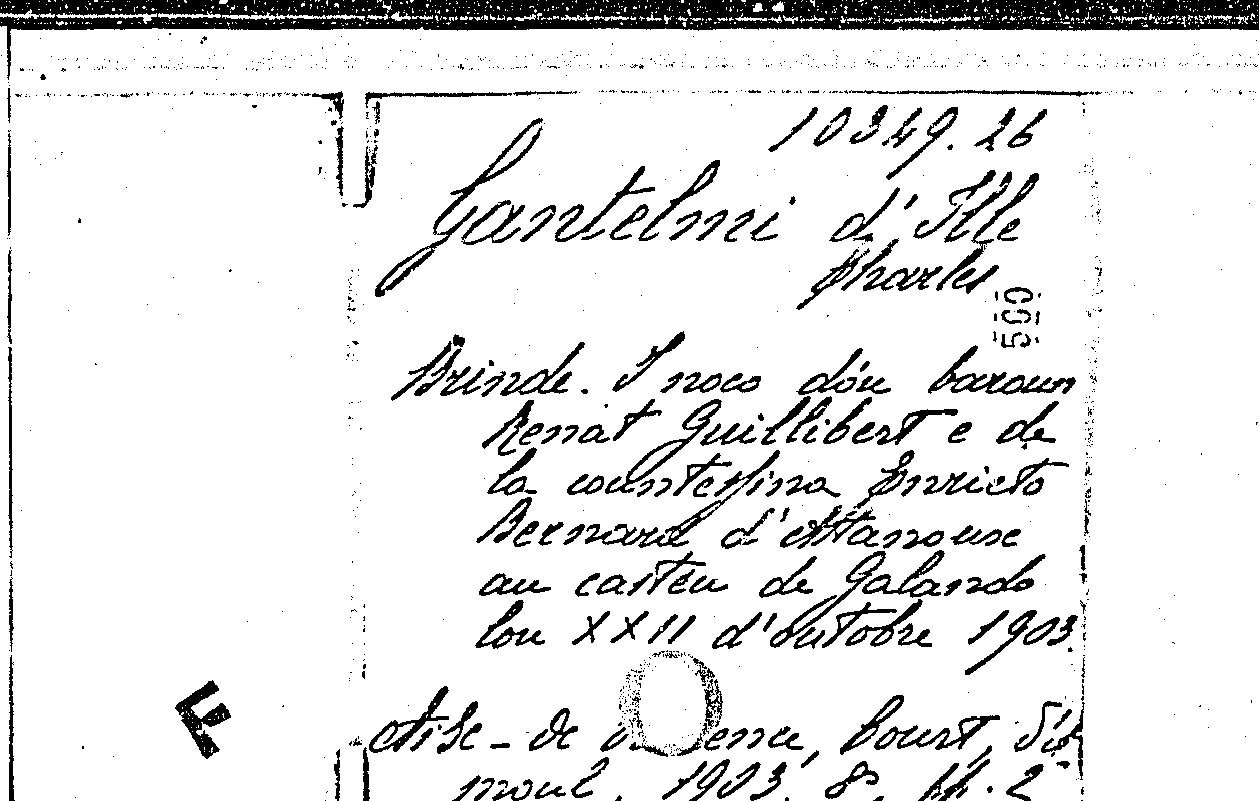 10349.26
Gantelmi d'Ille
Charles
500
Brinde. I noço dóu baroun
Renat Guillibert e de
la countessino Enrieto
Bernard d'Attanouse
au castèu de Galando
lou XXII d'outobre 1903.
Aise-de
Bourt,
1903. 8°. pp. 2
F